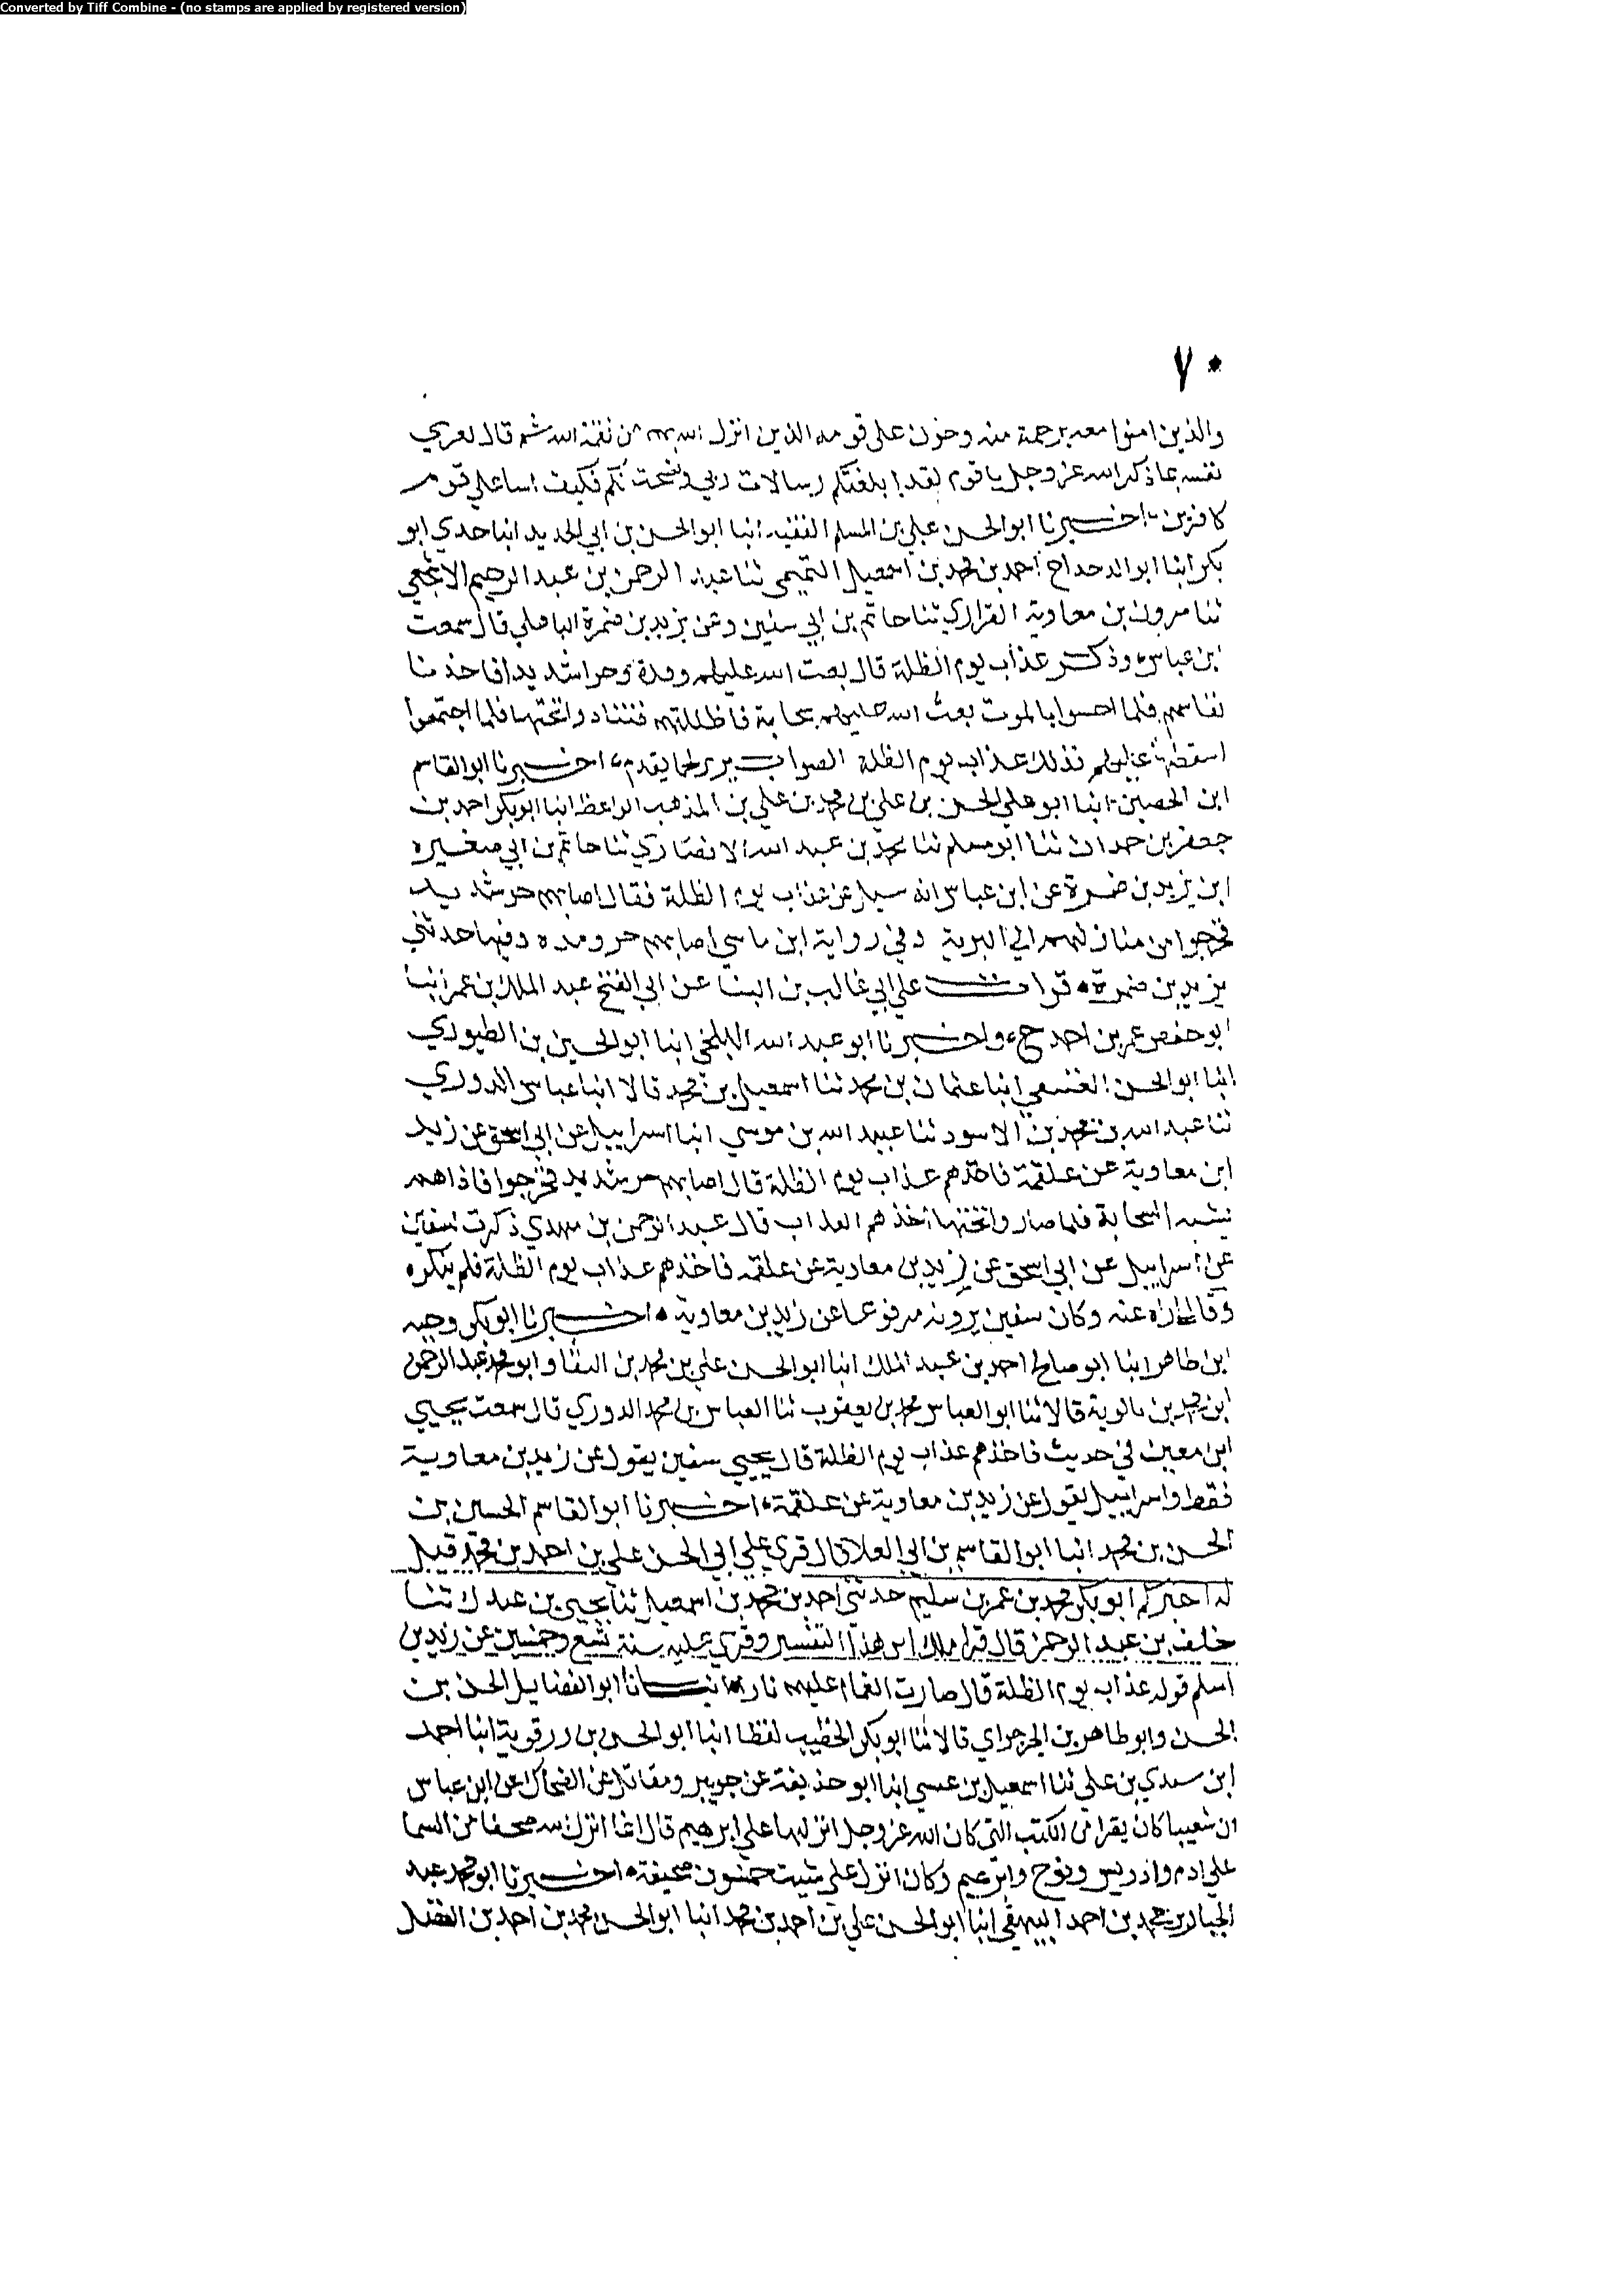 Converted by Tiff Combine - (no stamps are applied by registered version)
٧٠
والذين امنوا معه برحمة منه وحزن على قومه الذين انزل الله بهم من نقمة الله ثم قال يعزي
نفسه بما ذكر الله عز وجل يا قوم لقد ابلغتكم رسالات ربي ونصحت لكم فكيف اسا على قوم
كافرين اخبرنا ابو الحسن علي بن المسلم الفقيه انبا ابو الحسن بن ابي الحديد انبا جدي ابو
بكر انبا ابو الدحداح احمد بن محمد بن اسمعيل التميمي ثنا عبد الرحمن بن عبد الرحيم الاشجعي
ثنا مرون بن معاوية الفزاري ثنا حاتم بن ابي وعن يزيد بن ضمرة الباهلي قال سمعت
ابن عباس وذكر عذاب يوم الظلة قال بعث الله عليهم ومدة وحرا شديدا فاخذ منا
نفاسهم فلما احسوا بالموت بعث الله عليهم سحابة فاظلتهم فتنادوا تحتها فلما اجتمعوا
اسقطها عليهم فذلك عذاب يوم الظلة الصواب لما يقدم اخبرنا ابو القاسم
ابن الحصين انبا ابو علي الحسن بن علي بن محمد بن علي بن المذهب الواعظ انبا ابو بكر احمد بن
جعفر بن حمدان ثنا ابو مسلم ثنا محمد بن عبد الله الانصاري ثنا حاتم بن ابي صغيره
ابن يزيد بن ضمرة عن ابن عباس انه سيل عن عذاب يوم الظلة فقال اصابهم حر شديد
فخرجوا من منازلهم الي البرية وفي رواية ابن ماسي اصابهم حر ومده وفيها حدثني
يزيد بن ضمرة قرات علي ابي غالب بن البنا عن ابي الفتح عبد الملك بن عمر انبا
ابو حفص عمر بن احمد ح واخبرنا ابو عبد الله البلخي انبا ابو الحسين بن الطيوري
انبا ابو الحسن العتيقي انبا عثمان بن محمد ثنا اسمعيل بن محمد قالا انبا عباس الدوري
ثنا عبد الله بن محمد بن الاسود ثنا عبيد الله بن موسي انبا اسراييل عن ابي اسحق عن زيد
ابن معاوية عن علقمة فاخذهم عذاب يوم الظلة قال اصابهم حر شديد فخرجوا فاذا هم
بشبه السحابة فلما صاروا تحتها اخذهم العذاب قال عبد الرحمن بن مهدي ذكرت لسفين
عن اسراييل عن ابي اسحق عن زيد بن معاوية عن علقمه فاخذهم عذاب يوم الظلة فلم ينكره
وقال اراه عنه وكان سفين يرويه مرفوعا عن زيد بن معاوية اخبرنا ابو بكر وجيه
ابن طاهر انبا ابو صالح احمد بن عبد الملك انبا ابو الحسن علي بن محمد بن السقا وابو محمد عبد الرحمن
ابن محمد بن بالوية قالا ثنا ابو العباس محمد بن يعقوب ثنا العباس بن محمد الدوري قال سمعت يحيي
ابن معين في حديث فاخذهم عذاب يوم الظلة قال يحيي سفين يقول عن زيد بن معاوية
فقط واسراييل يقول عن زيد بن معاوية عن علقمة اخبرنا ابو القاسم الحسين بن
الحسن بن محمد انبا ابو القاسم بن ابي العلا قال قري علي ابي الحسن علي بن احمد بن محمد قيل
له اخبركم ابو بكر محمد بن عمر بن سليم حدثني احمد بن محمد بن اسمعيل ثنا يحيي بن عبدك ثنا
خلف بن عبد الرحمن قال قرا ملك ابن هذا التفسير وقري عليه سنة تسع وخمسين عن زيد بن
اسلم قوله عذاب يوم الظلة قال صارت الغمام عليهم نارا انبانا ابو الفضايل الحسن بن
الحسن وابو طاهر بن الجرجراي قالا ثنا ابو بكر الخطيب لفظا انبا ابو الحسن بن رزقوية انبا احمد
ابن سندي بن علي ثنا اسمعيل بن عيسي انبا ابو حذيفة عن جويبر ومقاتل عن الضحاك عن ابن عباس
ان شعيبا كان يقرا من الكتب التي كان الله عز وجل انزلها علي ابرهيم قال انما انزل الله صحفا من السما
علي ادم وادريس ونوح وابرهيم وكان انزل علي شيث خمسون صحيفة اخبرنا ابو محمد عبد
الجبار بن محمد بن احمد البيهقي انبا ابو الحسن علي بن احمد بن محمد انبا ابو الحسن محمد بن احمد بن الفضل